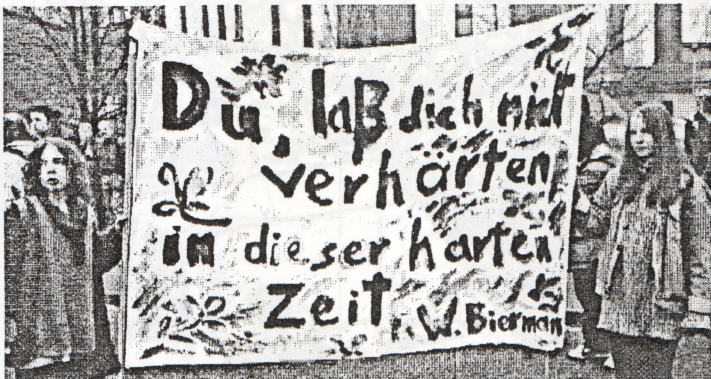 Du, laß dich nicht
verhärten
in dieser harten
Zeit
v. W. Bierman